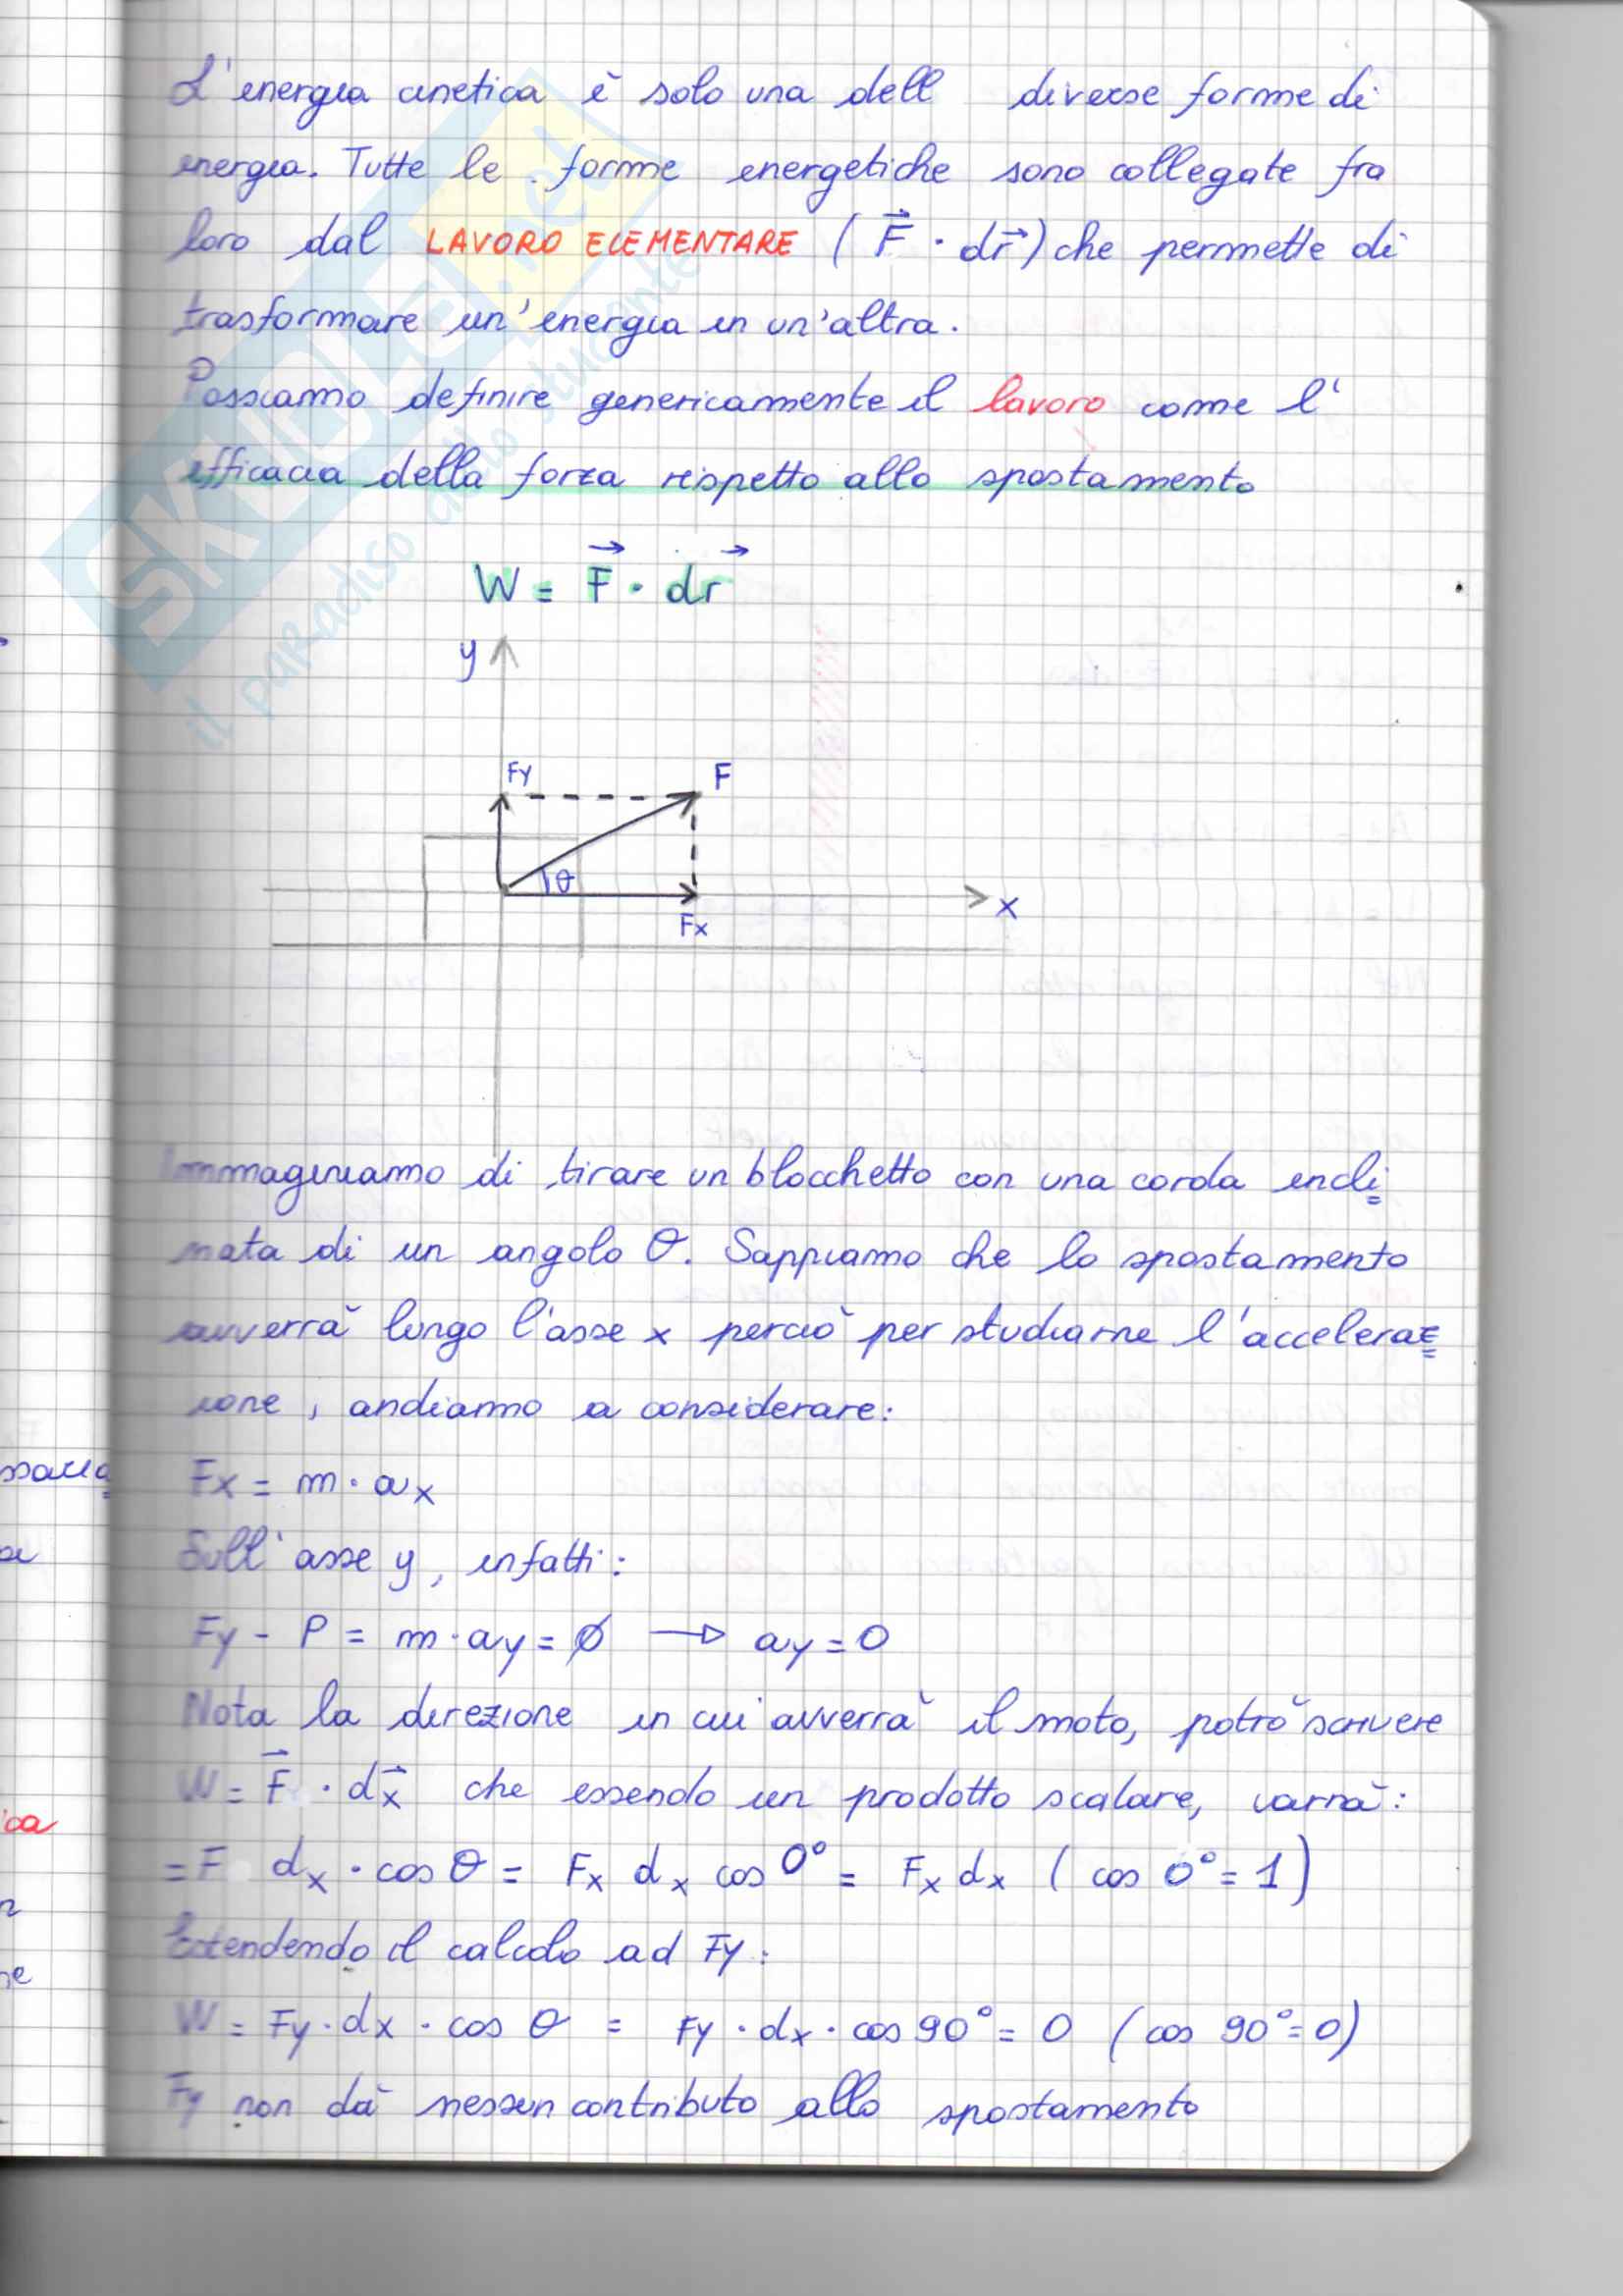 L'energia cinetica è solo una dell diverse forme di
energia. Tutte le forme energetiche sono collegate fra
loro dal LAVORO ELEMENTARE (F⃗ · dr⃗) che permette di
trasformare un'energia in un'altra.
Possiamo definire genericamente il lavoro come l'
efficacia della forza rispetto allo spostamento
W = F⃗ · dr⃗
y
Fy F
θ
x
Fx
Immaginiamo di tirare un blocchetto con una corda incli=
nata di un angolo θ. Sappiamo che lo spostamento
avverrà lungo l'asse x perciò per studiarne l'acceleraz=
ione, andiamo a considerare:
Fx = m · ax
Sull'asse y, infatti:
Fy - P = m · ay = Ø → ay = 0
Nota la direzione in cui avverrà il moto, potrò scrivere
W = F⃗ · dx⃗ che essendo un prodotto scalare, varrà:
= F dx · cos θ = Fx dx cos 0° = Fx dx ( cos 0° = 1 )
Estendendo il calcolo ad Fy:
W = Fy · dx · cos θ = Fy · dx · cos 90° = 0 (cos 90° = 0)
Fy non dà nessun contributo allo spostamento
SKUOLA.net
il paradiso dello studente